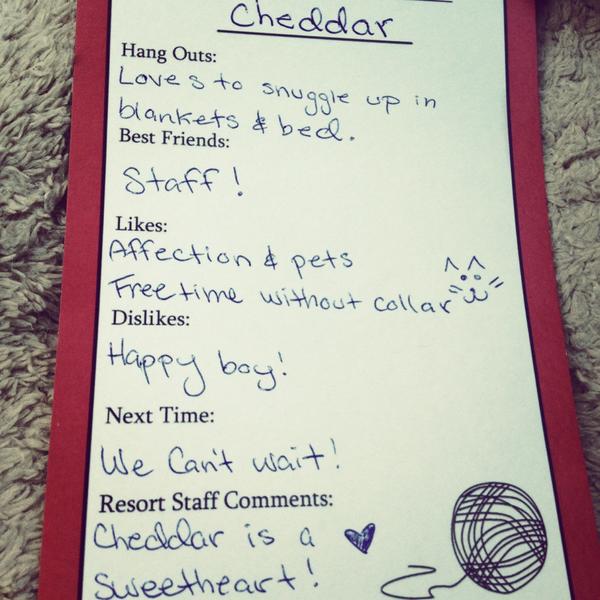 Cheddar
Hang Outs:
Loves to snuggle up in
blankets & bed.
Best Friends:
Staff!
Likes:
Affection & pets
Freetime without collar
Dislikes:
Happy boy!
Next Time:
We Can't wait!
Resort Staff Comments:
Cheddar is a
sweetheart!